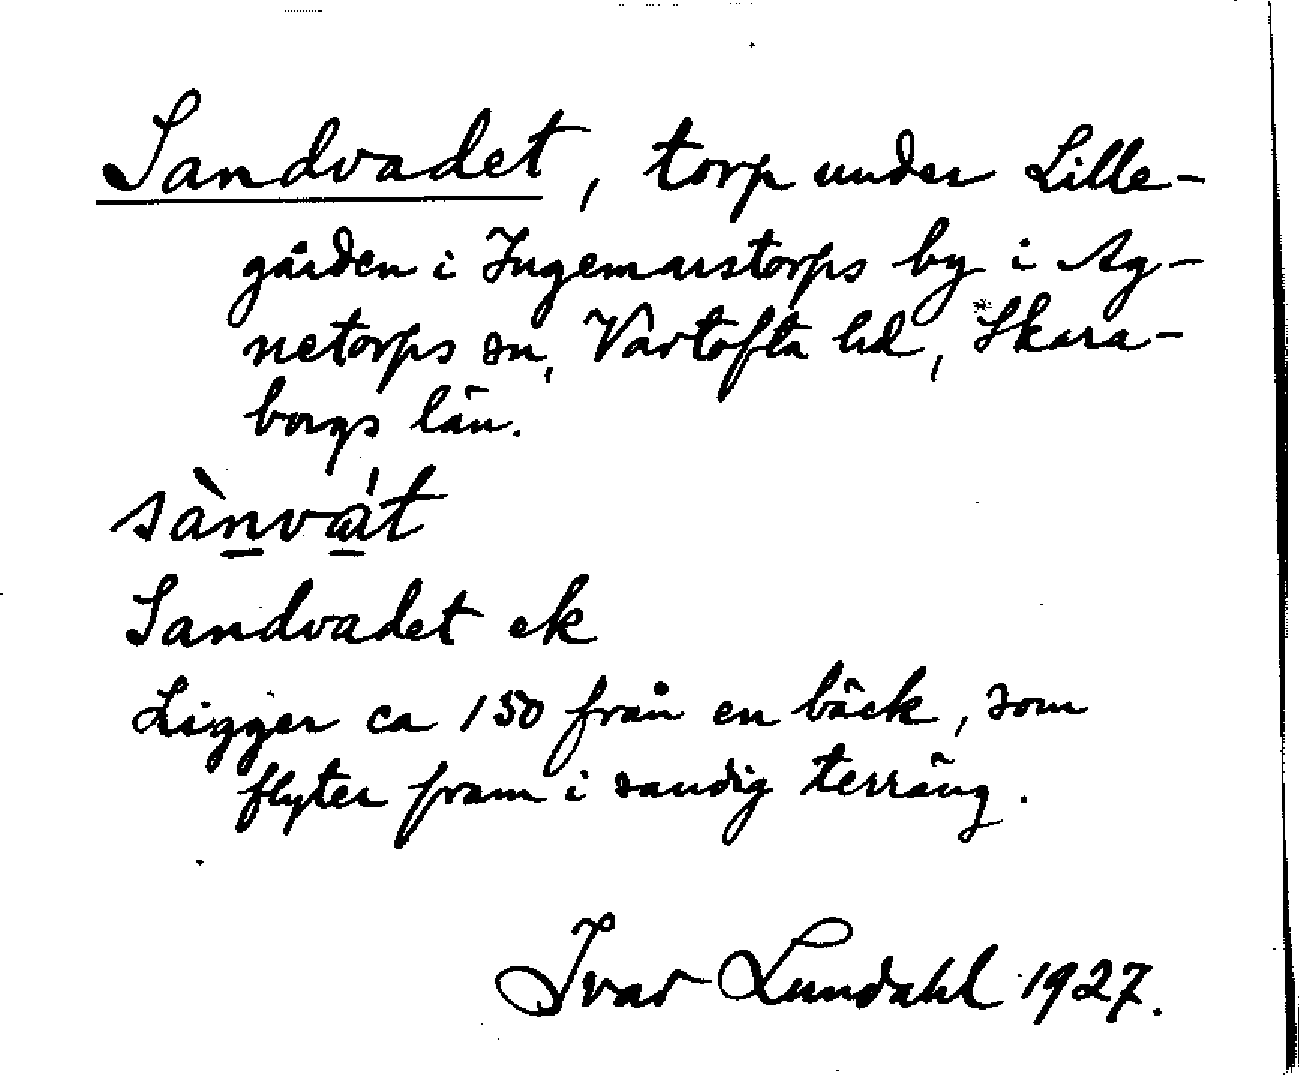 Sandvadet, torp under Lille-
gården i Ingemarstorps by i Ag-
netorps sn, Vartofta hd, Skara-
borgs län.
sànvát
Sandvadet ek
Ligger ca 150 från en bäck, som
flyter fram i sandig terräng.
Ivar Lundahl 1927.